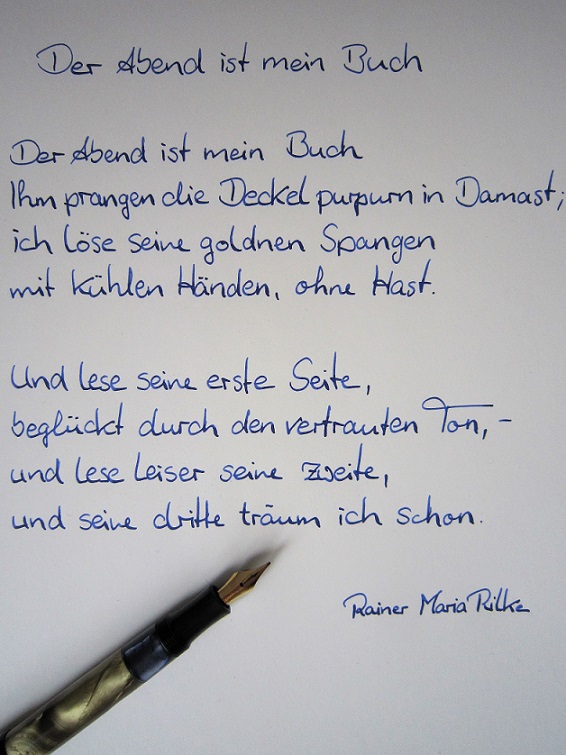 Der Abend ist mein Buch
Der Abend ist mein Buch
Ihm prangen die Deckel purpurn in Damast;
ich löse seine goldnen Spangen
mit kühlen Händen, ohne Hast.
Und lese seine erste Seite,
beglückt durch den vertrauten Ton,-
und lese leiser seine zweite,
und seine dritte träum ich schon.
Rainer Maria Rilke